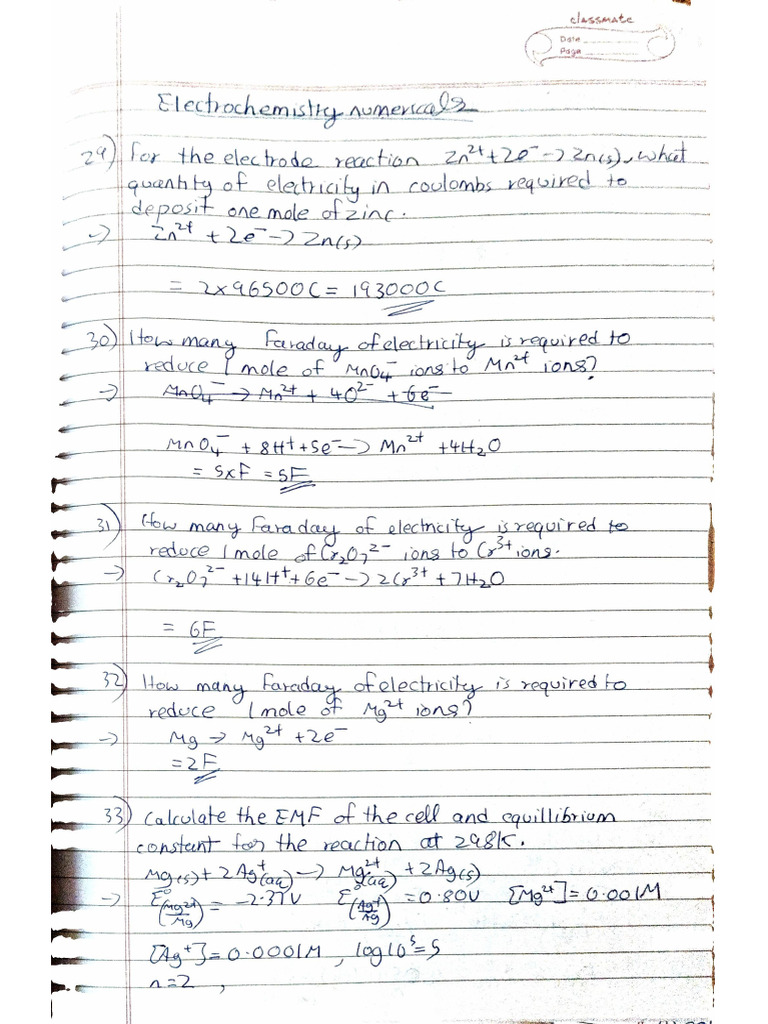 classmate
Date
Page
Electrochemistry numericals
29) For the electrode reaction Zn²⁺+2e⁻→Zn(s), what
quantity of electricity in coulombs required to
deposit one mole of zinc.
→ Zn²⁺ + 2e⁻→Zn(s)
= 2x96500C = 193000C
30) How many Faraday of electricity is required to
reduce 1 mole of MnO₄⁻ ions to Mn²⁺ ions?
→ MnO₄⁻ → Mn²⁺ + 4O²⁻ + 6e⁻
MnO₄⁻ + 8H⁺+5e⁻→ Mn²⁺ +4H₂O
= 5xF = 5F
31) How many Faraday of electricity is required to
reduce 1 mole of Cr₂O₇²⁻ ions to Cr³⁺ ions.
→ Cr₂O₇²⁻ +14H⁺+6e⁻→2Cr³⁺ +7H₂O
= 6F
32) How many Faraday of electricity is required to
reduce 1 mole of Mg²⁺ ions?
→ Mg → Mg²⁺ +2e⁻
=2F
33) Calculate the EMF of the cell and equillibrium
constant for the reaction at 298K.
Mg(s)+2Ag⁺(aq) → Mg²⁺(aq) +2Ag(s)
→ E°(Mg²⁺/Mg) = -2.37V E°(Ag⁺/Ag) =0.80V [Mg²⁺]=0.001M
[Ag⁺]=0.0001M , log10⁵=5
n=2 ,